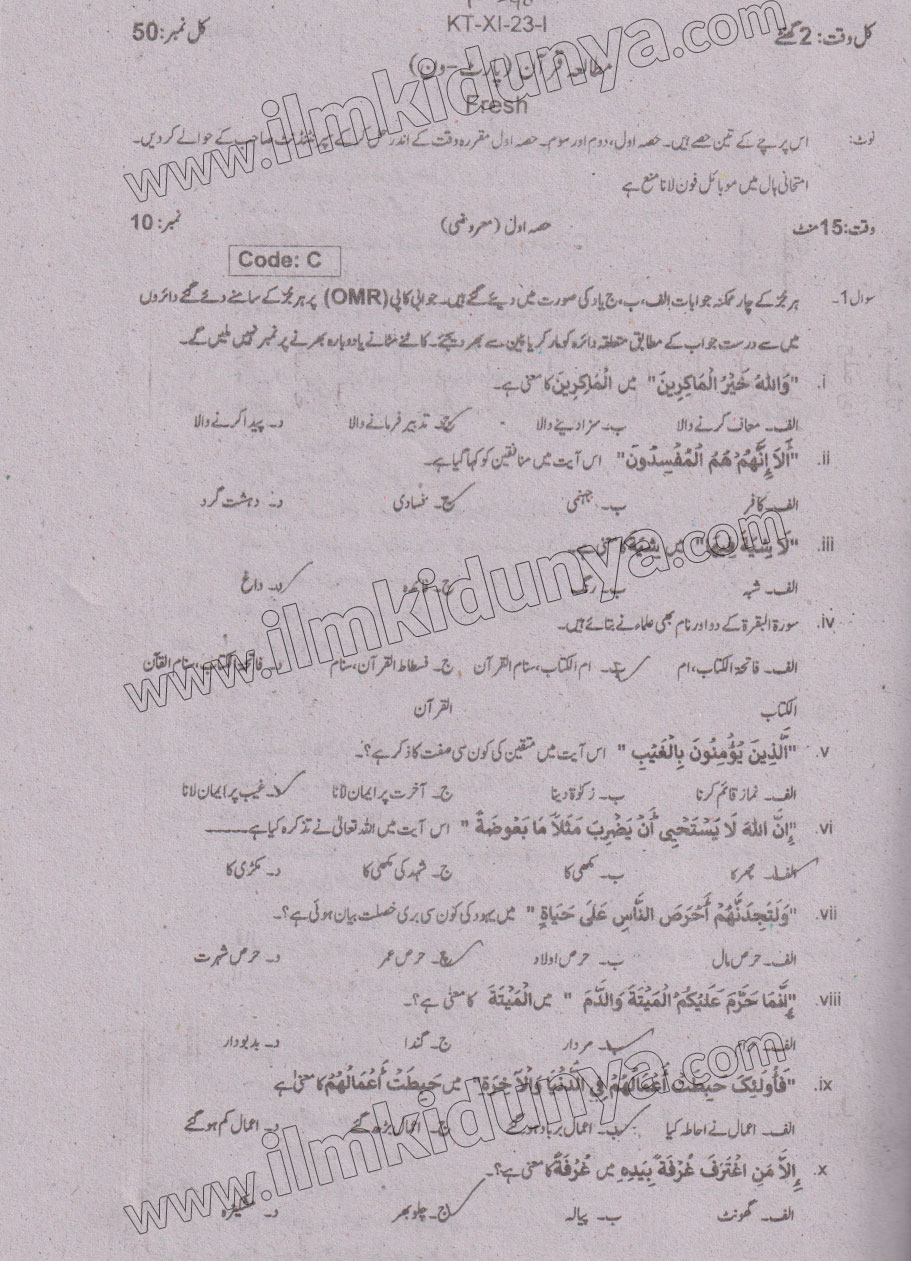 KT-XI-23-I
کل وقت: 2 گھنٹے کل نمبر: 50
مطالعہ قرآن (پارٹ-ون)
Fresh
نوٹ: اس پرچے کے تین حصے ہیں۔ حصہ اول، دوم اور سوم۔ حصہ اول مقررہ وقت کے اندر حل کر کے سپرنٹنڈنٹ صاحب کے حوالے کر دیں۔
امتحانی ہال میں موبائل فون لانا منع ہے
وقت: 15 منٹ حصہ اول (معروضی) نمبر: 10
Code: C
سوال 1۔ ہر جُز کے چار ممکنہ جوابات الف، ب، ج یا د کی صورت میں دیئے گئے ہیں۔ جوابی کاپی (OMR) پر ہر جُز کے سامنے دئے گئے دائروں
میں سے درست جواب کے مطابق متعلقہ دائرہ کو مارکر یا پین سے بھر دیجئے۔ کاٹنے مٹانے یا دوبارہ بھرنے پر نمبر نہیں ملیں گے۔
i. "وَاللّٰهُ خَيْرُ الْمَاكِرِينَ" میں الْمَاكِرِينَ کا معنی ہے۔
الف۔ معاف کرنے والا ب۔ سزا دینے والا ج۔ تدبیر فرمانے والا د۔ پیدا کرنے والا
ii. "أَلَا إِنَّهُمْ هُمُ الْمُفْسِدُونَ" اس آیت میں منافقین کو کہا گیا ہے۔
الف۔ کافر ب۔ جہنمی ج۔ فسادی د۔ دہشت گرد
iii. "لَا شِيَةَ فِيهَا" میں شِيَةَ کا معنی ہے۔
الف۔ شبہ ب۔ رنگ ج۔ د۔ داغ
iv. سورۃ البقرۃ کے دو اور نام بھی علماء نے بتائے ہیں۔
الف۔ فاتحۃ الکتاب، ام ب۔ ام الکتاب، سنام القرآن ج۔ فسطاط القرآن، سنام د۔ فاتحۃ الکتاب، سنام القآن
الکتاب القرآن
v. "الَّذِينَ يُؤْمِنُونَ بِالْغَيْبِ" اس آیت میں متقین کی کون سی صفت کا ذکر ہے؟۔
الف۔ نماز قائم کرنا ب۔ زکوۃ دینا ج۔ آخرت پر ایمان لانا د۔ غیب پر ایمان لانا
vi. "إِنَّ اللّٰهَ لَا يَسْتَحْيِىٓ أَنْ يَضْرِبَ مَثَلًا مَا بَعُوضَةً" اس آیت میں اللہ تعالیٰ نے تذکرہ کیا ہے۔۔۔۔۔۔
الف۔ مچھر کا ب۔ مکھی کا ج۔ شہد کی مکھی کا د۔ مکڑی کا
vii. "وَلَتَجِدَنَّهُمْ أَحْرَصَ النَّاسِ عَلَى حَيَاةٍ" میں یہود کی کون سی بری خصلت بیان ہوئی ہے؟۔
الف۔ حرص مال ب۔ حرص اولاد ج۔ حرص عمر د۔ حرص شہرت
viii. "إِنَّمَا حَرَّمَ عَلَيْكُمُ الْمَيْتَةَ وَالدَّمَ" میں الْمَيْتَةَ کا معنی ہے؟۔
الف۔ ب۔ مردار ج۔ گندا د۔ بدبودار
ix. "فَأُولَئِكَ حَبِطَتْ أَعْمَالُهُمْ فِي الدُّنْيَا وَالْآخِرَةِ" میں حَبِطَتْ أَعْمَالُهُمْ کا معنی ہے
الف۔ اعمال نے احاطہ کیا ب۔ اعمال برباد ہو گئے ج۔ اعمال بڑھ گئے د۔ اعمال کم ہو گئے
x. إِلَّا مَنِ اغْتَرَفَ غُرْفَةً بِيَدِهِ میں غُرْفَةً کا معنی ہے؟۔
الف۔ گھونٹ ب۔ پیالہ ج۔ چلو بھر د۔ مشکیزہ
www.ilmkidunya.com
www.ilmkidunya.com
www.ilmkidunya.com